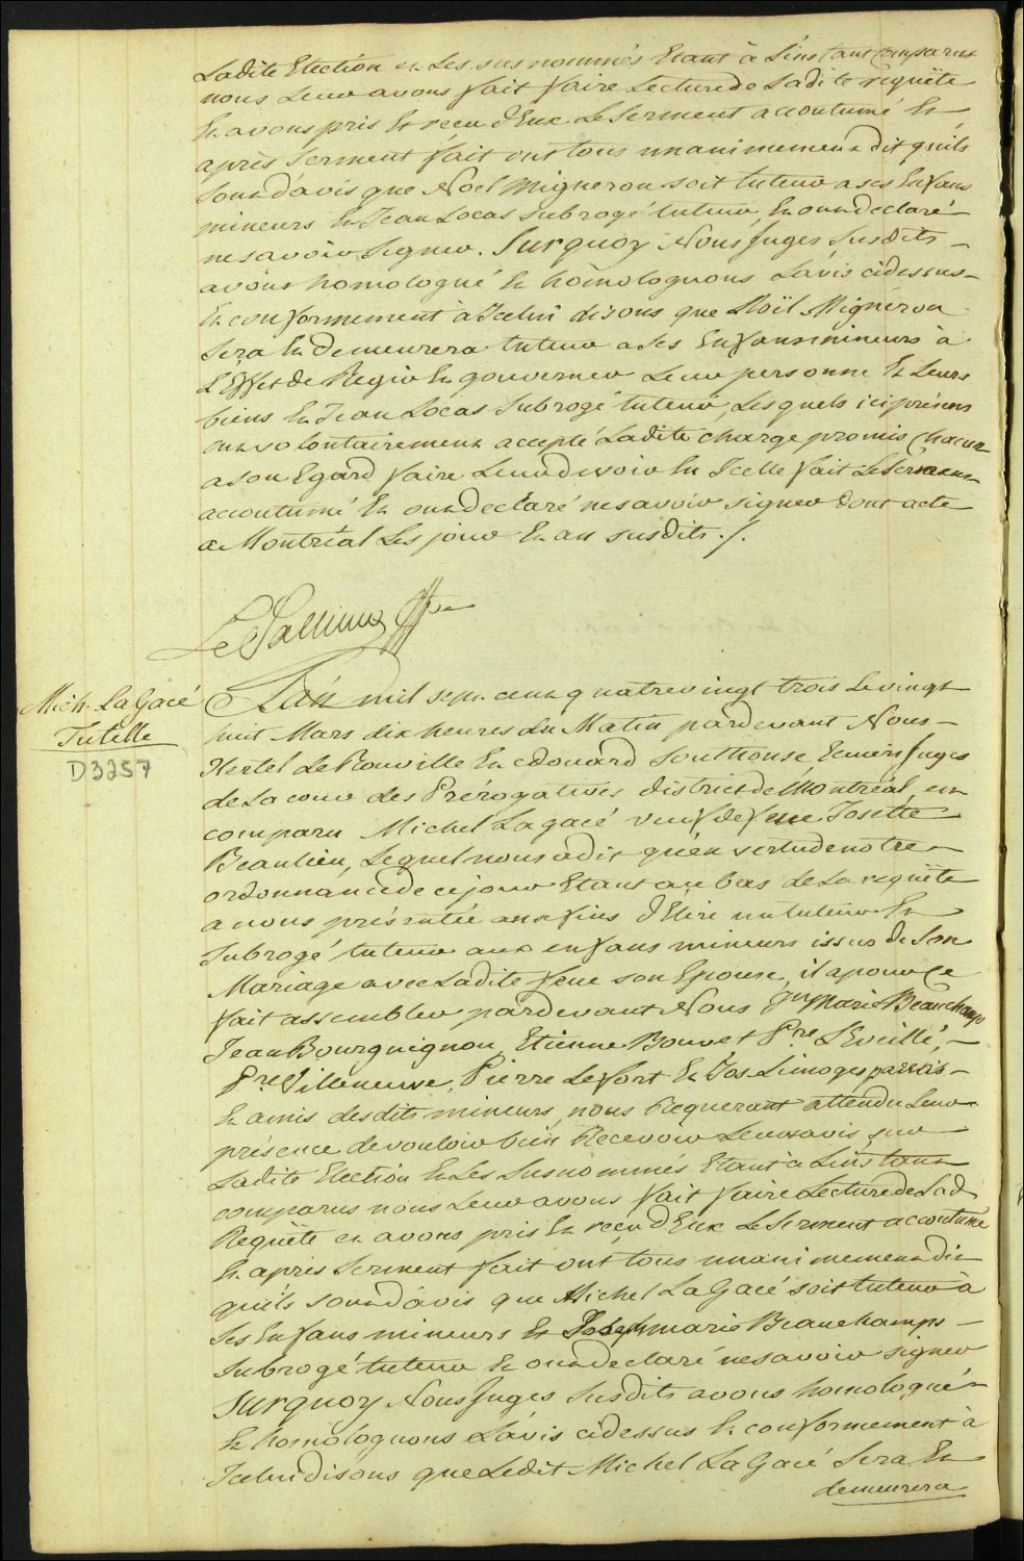 Ladite Election et Les sus nommés Etant à L'instant comparus
nous Leur avons fait faire Lecture de Ladite requête
Et avons pris Et reçu d'Eux Le Serment accoutumé Et
après Serment fait ont tous unanimement dit quils
sont d'avis que Noël Migneron soit tuteur a ses Enfans
mineurs Et Jean Locas subrogé tuteur, Et ont declaré
ne savoir signer. Surquoy Nous Juges Susdits
avons homologué Et homologuons L'avis cidessus
Et conformement à Icelui disons que Noël Migneron
sera Et demeurera tuteur a ses Enfans mineurs à
L'Effet de Regir Et gouverner Leur personne Et Leurs
biens Et Jean Locas Subrogé tuteur, Les quels ici présens
ont volontairement accepté Ladite charge promis chacun
a son Egard faire Leur devoir En Icelle fait Le Serment
accoutumé Et ont declaré ne savoir signer dont acte
a Montréal Les jour Et an susdits ./.
Mich. LaGacé
Tutelle
D3257
L'an mil sept cent quatrevingt trois Le vingt
huit Mars dix heures du Matin pardevant Nous
Hertel De Rouville Et Edouard Southouse Ecuiers Juges
de La cour des Prérogatives district de Montréal, est
comparu Michel Lagacé veuf de feue Josette
Beaulieu, Lequel nous a dit qu'en vertu de notre
ordonnance de ce jour Etant au bas de La requête
a nous présentée aux fins d'Elire un tuteur Et
subrogé tuteur aux enfans mineurs issus de Son
Mariage avec Ladite feue son Epouse, il a pour Ce
fait assembler pardevant Nous Jh Marie Beauchamps
Jean Bourguignon, Etienne Bouvet Pre L'Eveillé,
Pre Villeneuve, Pierre Lefort Et Jos. Limoges parens
Et amis desdits mineurs, nous Requerant attendu Leur
présence de vouloir bien Recevoir Leurs avis sur
Ladite Election Et Les Susnommés Etant à L'instant
comparus nous Leur avons fait faire Lecture de Lad.
Requête et avons pris Et reçu d'Eux Le Serment accoutumé
Et après Serment fait ont tous unanimement dit
quils sont d'avis que Michel LaGacé soit tuteur à
Ses Enfans mineurs Et Joseph marie Beauchamps
Subrogé tuteur Et ont declaré ne savoir signer
Surquoy Nous Juges Susdits avons homologué
Et homologuons L'avis cidessus Et conformement à
Icelui disons que Ledit Michel LaGacé Sera Et
demeurera